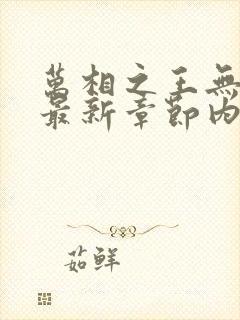 萬相之王無
最新章節内
茹鲜